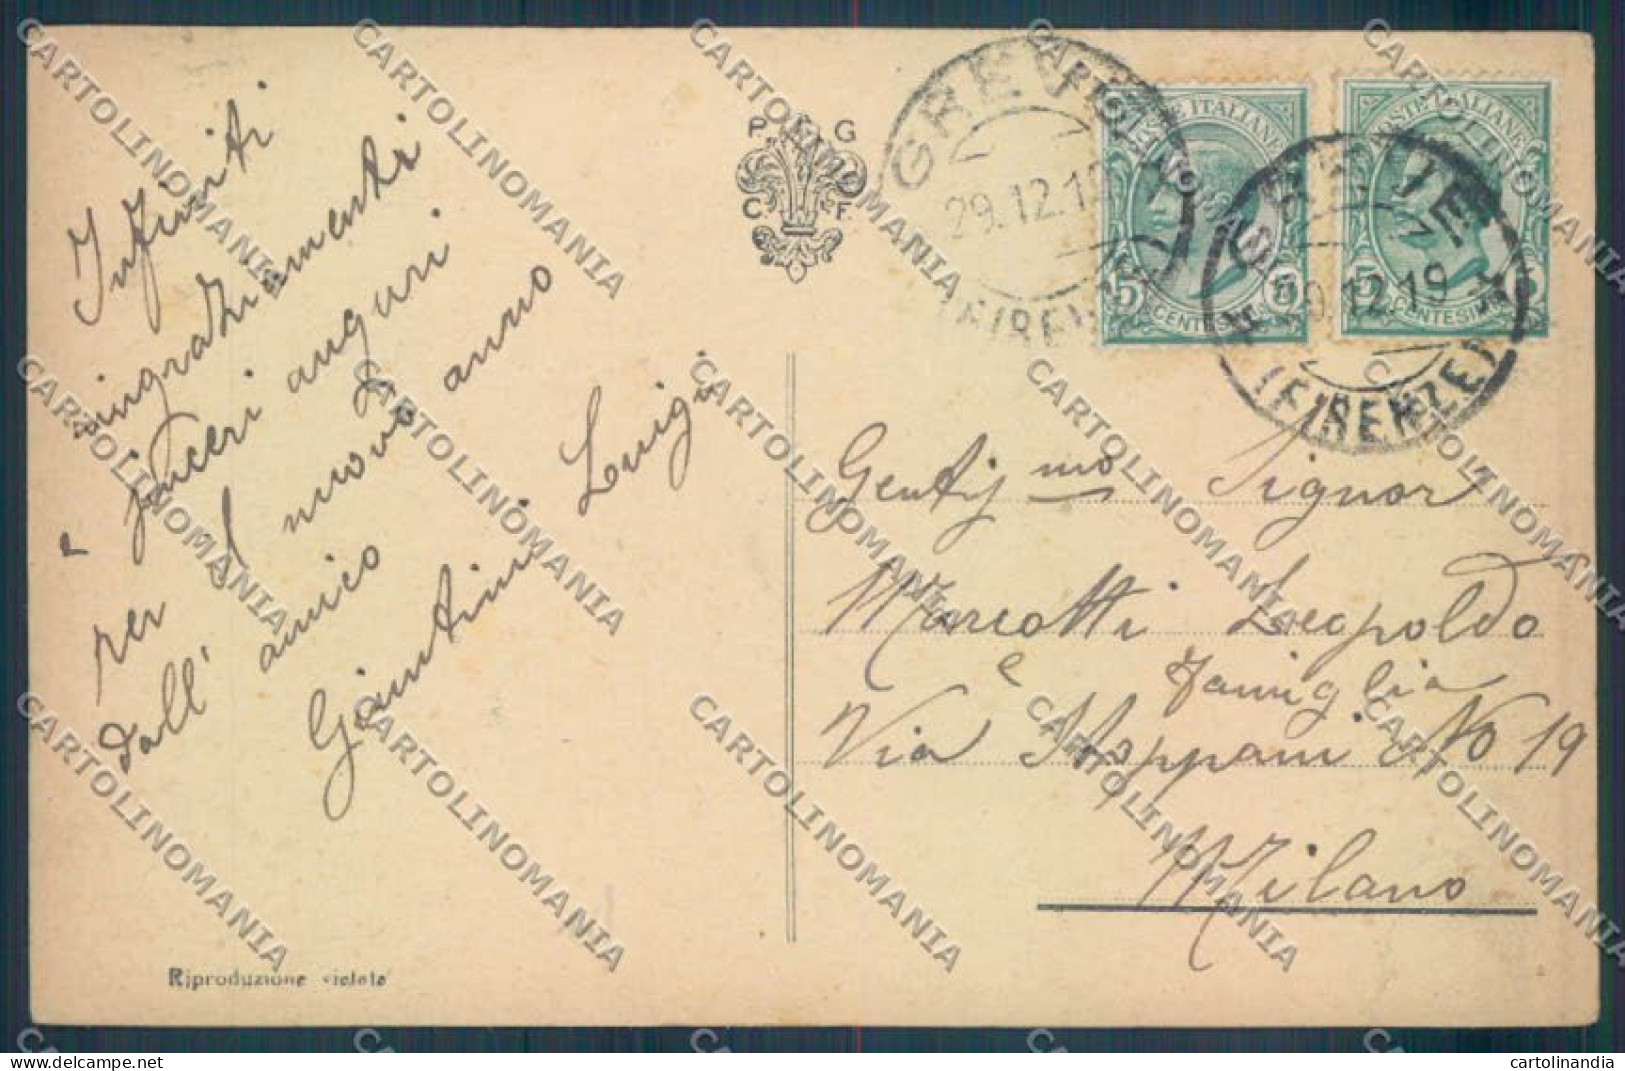 Infiniti
ringraziamenti
e sinceri auguri
per il nuovo anno
dall' amico
Giantini Luigi
Riproduzione vietata
P. G.
C. F.
GREVE
29.12.19
(FIRENZE)
POSTE ITALIANE
5 5
CENTESIMI
GREVE
29.12.19
(FIRENZE)
POSTE ITALIANE
5 5
CENTESIMI
Gentiss mo Signor
Marcotti Leopoldo
e famiglia
Via Stoppani No 19
Milano
CARTOLINOMANIA
delcampe.net
cartolinandia